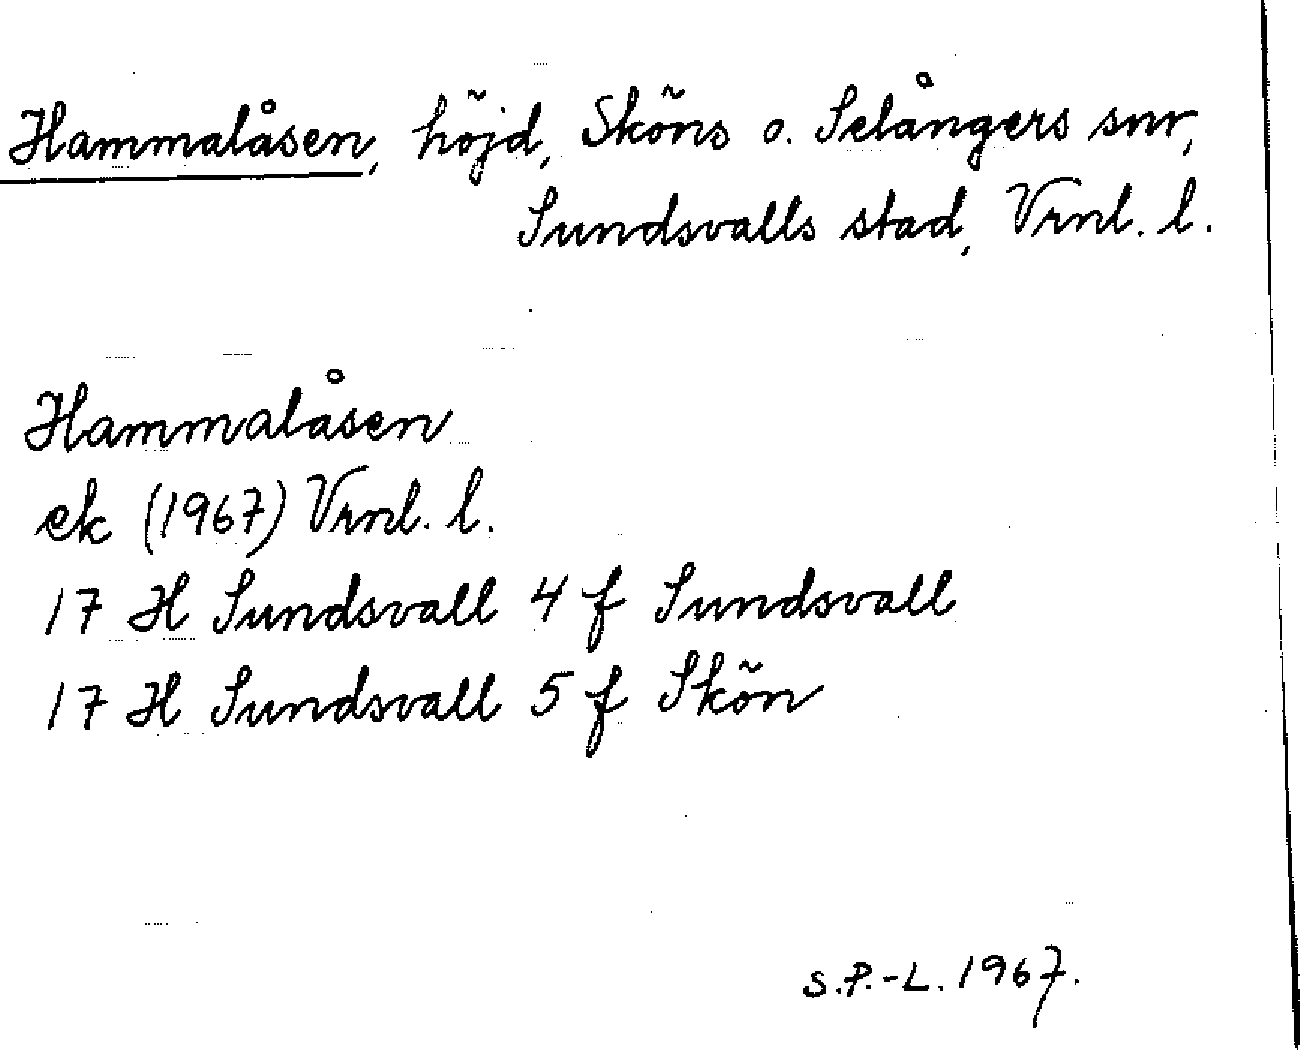 Hammalåsen, höjd, Sköns o. Selångers snr,
Sundsvalls stad, Vrnl. l.
Hammalåsen
ek (1967) Vrnl. l.
17 H Sundsvall 4 f Sundsvall
17 H Sundsvall 5 f Skön
S.P.-L. 1967.